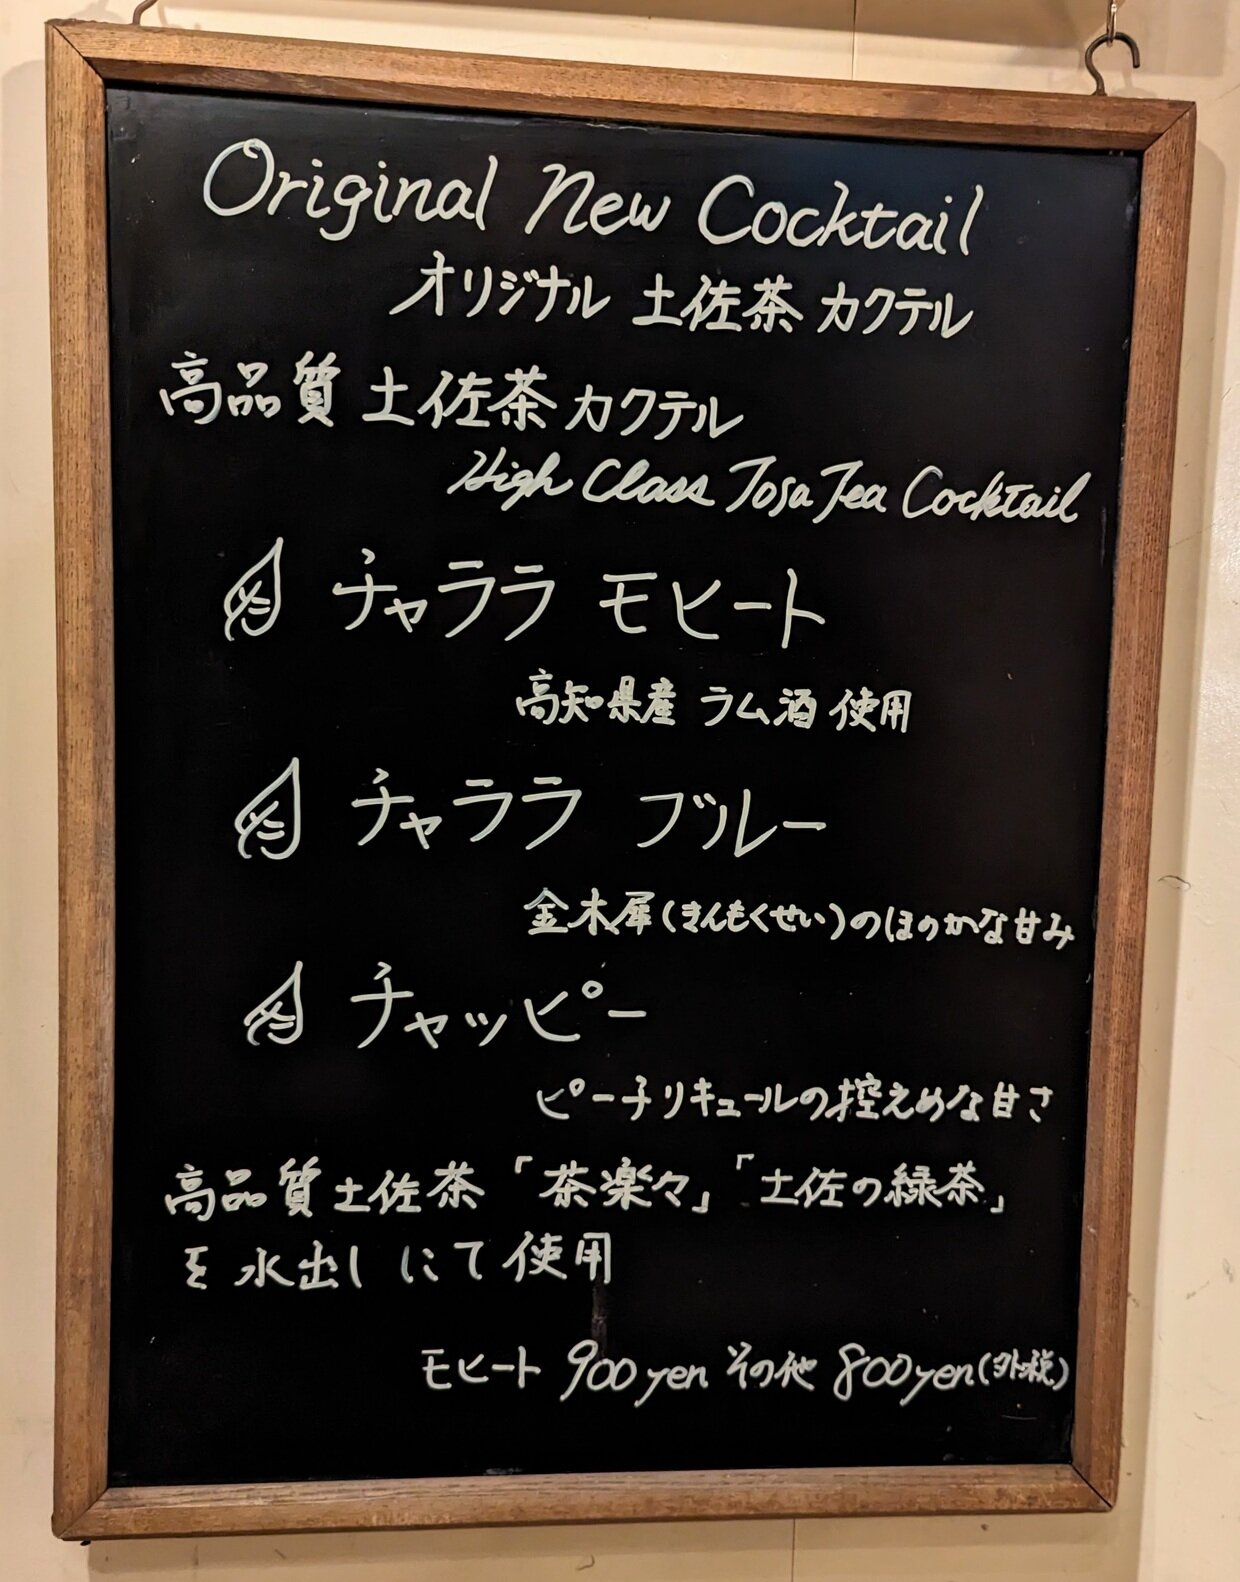 Original New Cocktail
オリジナル 土佐茶 カクテル
高品質 土佐茶 カクテル
High Class Tosa Tea Cocktail
チャララ モヒート
高知県産 ラム酒 使用
チャララ ブルー
金木犀(きんもくせい)のほのかな甘み
チャッピー
ピーチリキュールの控えめな甘さ
高品質土佐茶「茶楽々」「土佐の緑茶」
を水出しにて使用
モヒート 900yen その他 800yen(外税)